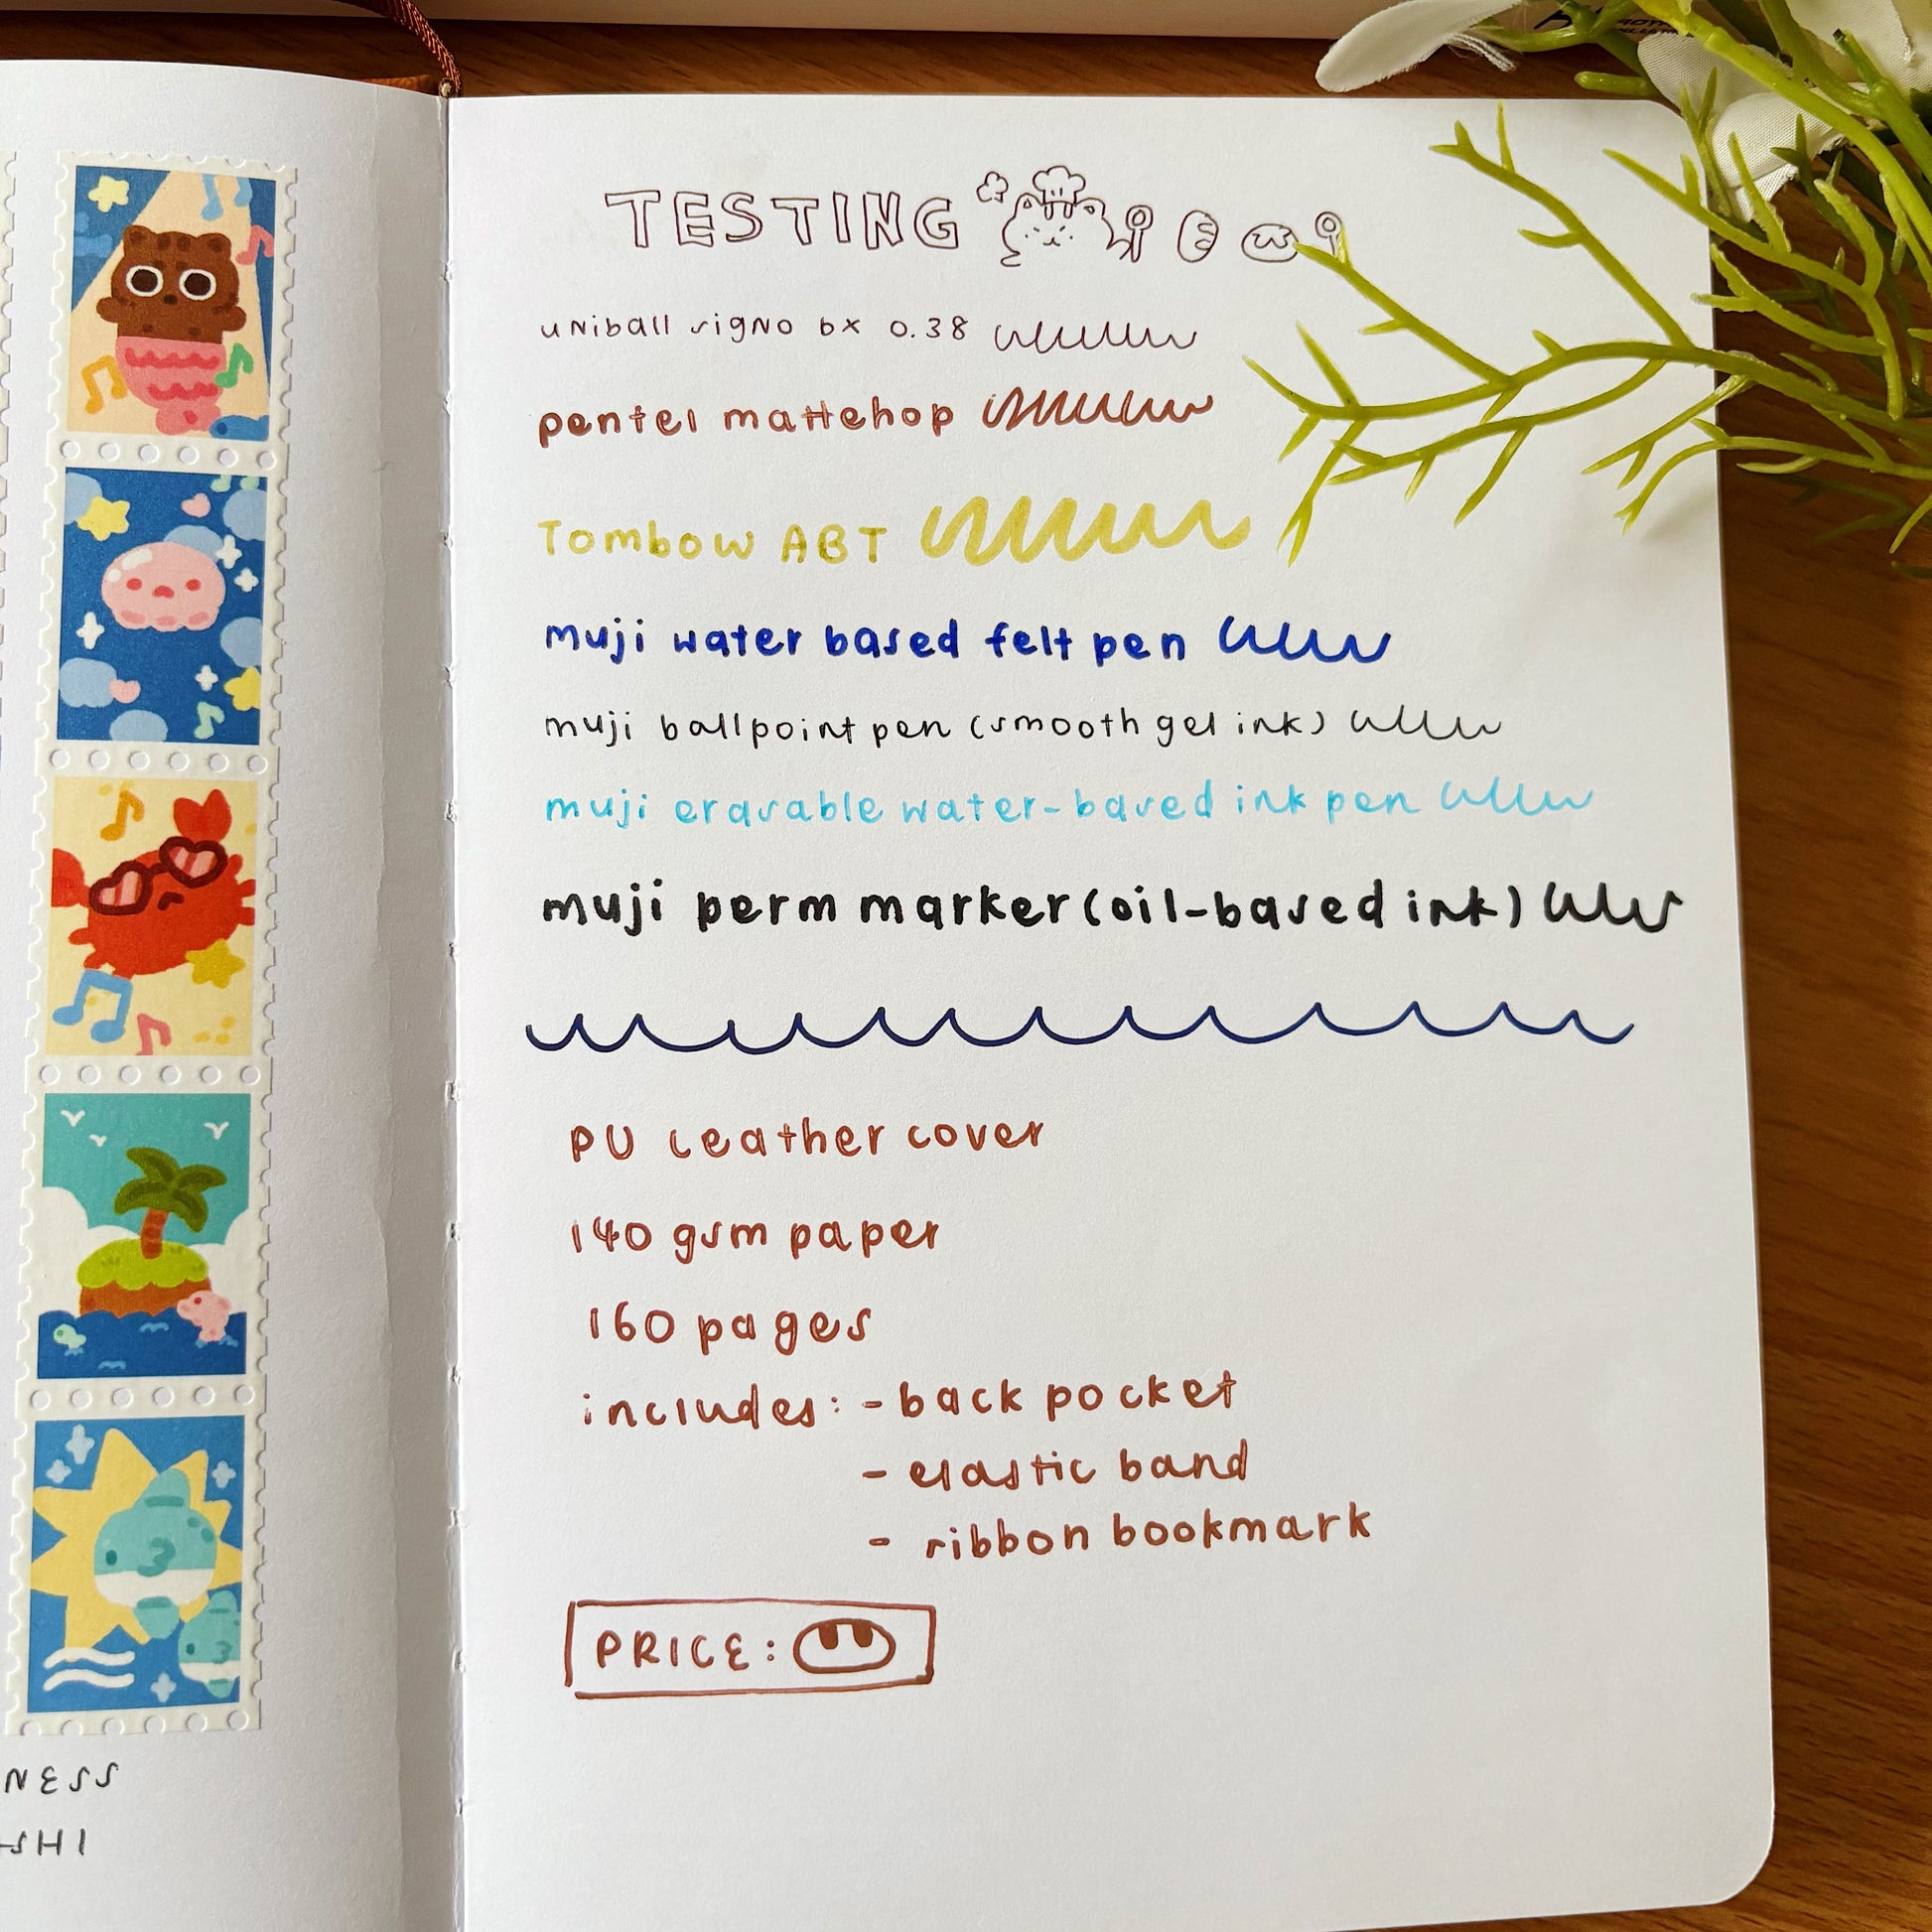 NESS
SHI
TESTING
uniball signo bx 0.38
pentel mattehop
Tombow ABT
muji water based felt pen
muji ballpoint pen (smooth gel ink)
muji erasable water-based ink pen
muji perm marker (oil-based ink)
PU leather cover
140 gsm paper
160 pages
includes: - back pocket
- elastic band
- ribbon bookmark
PRICE: